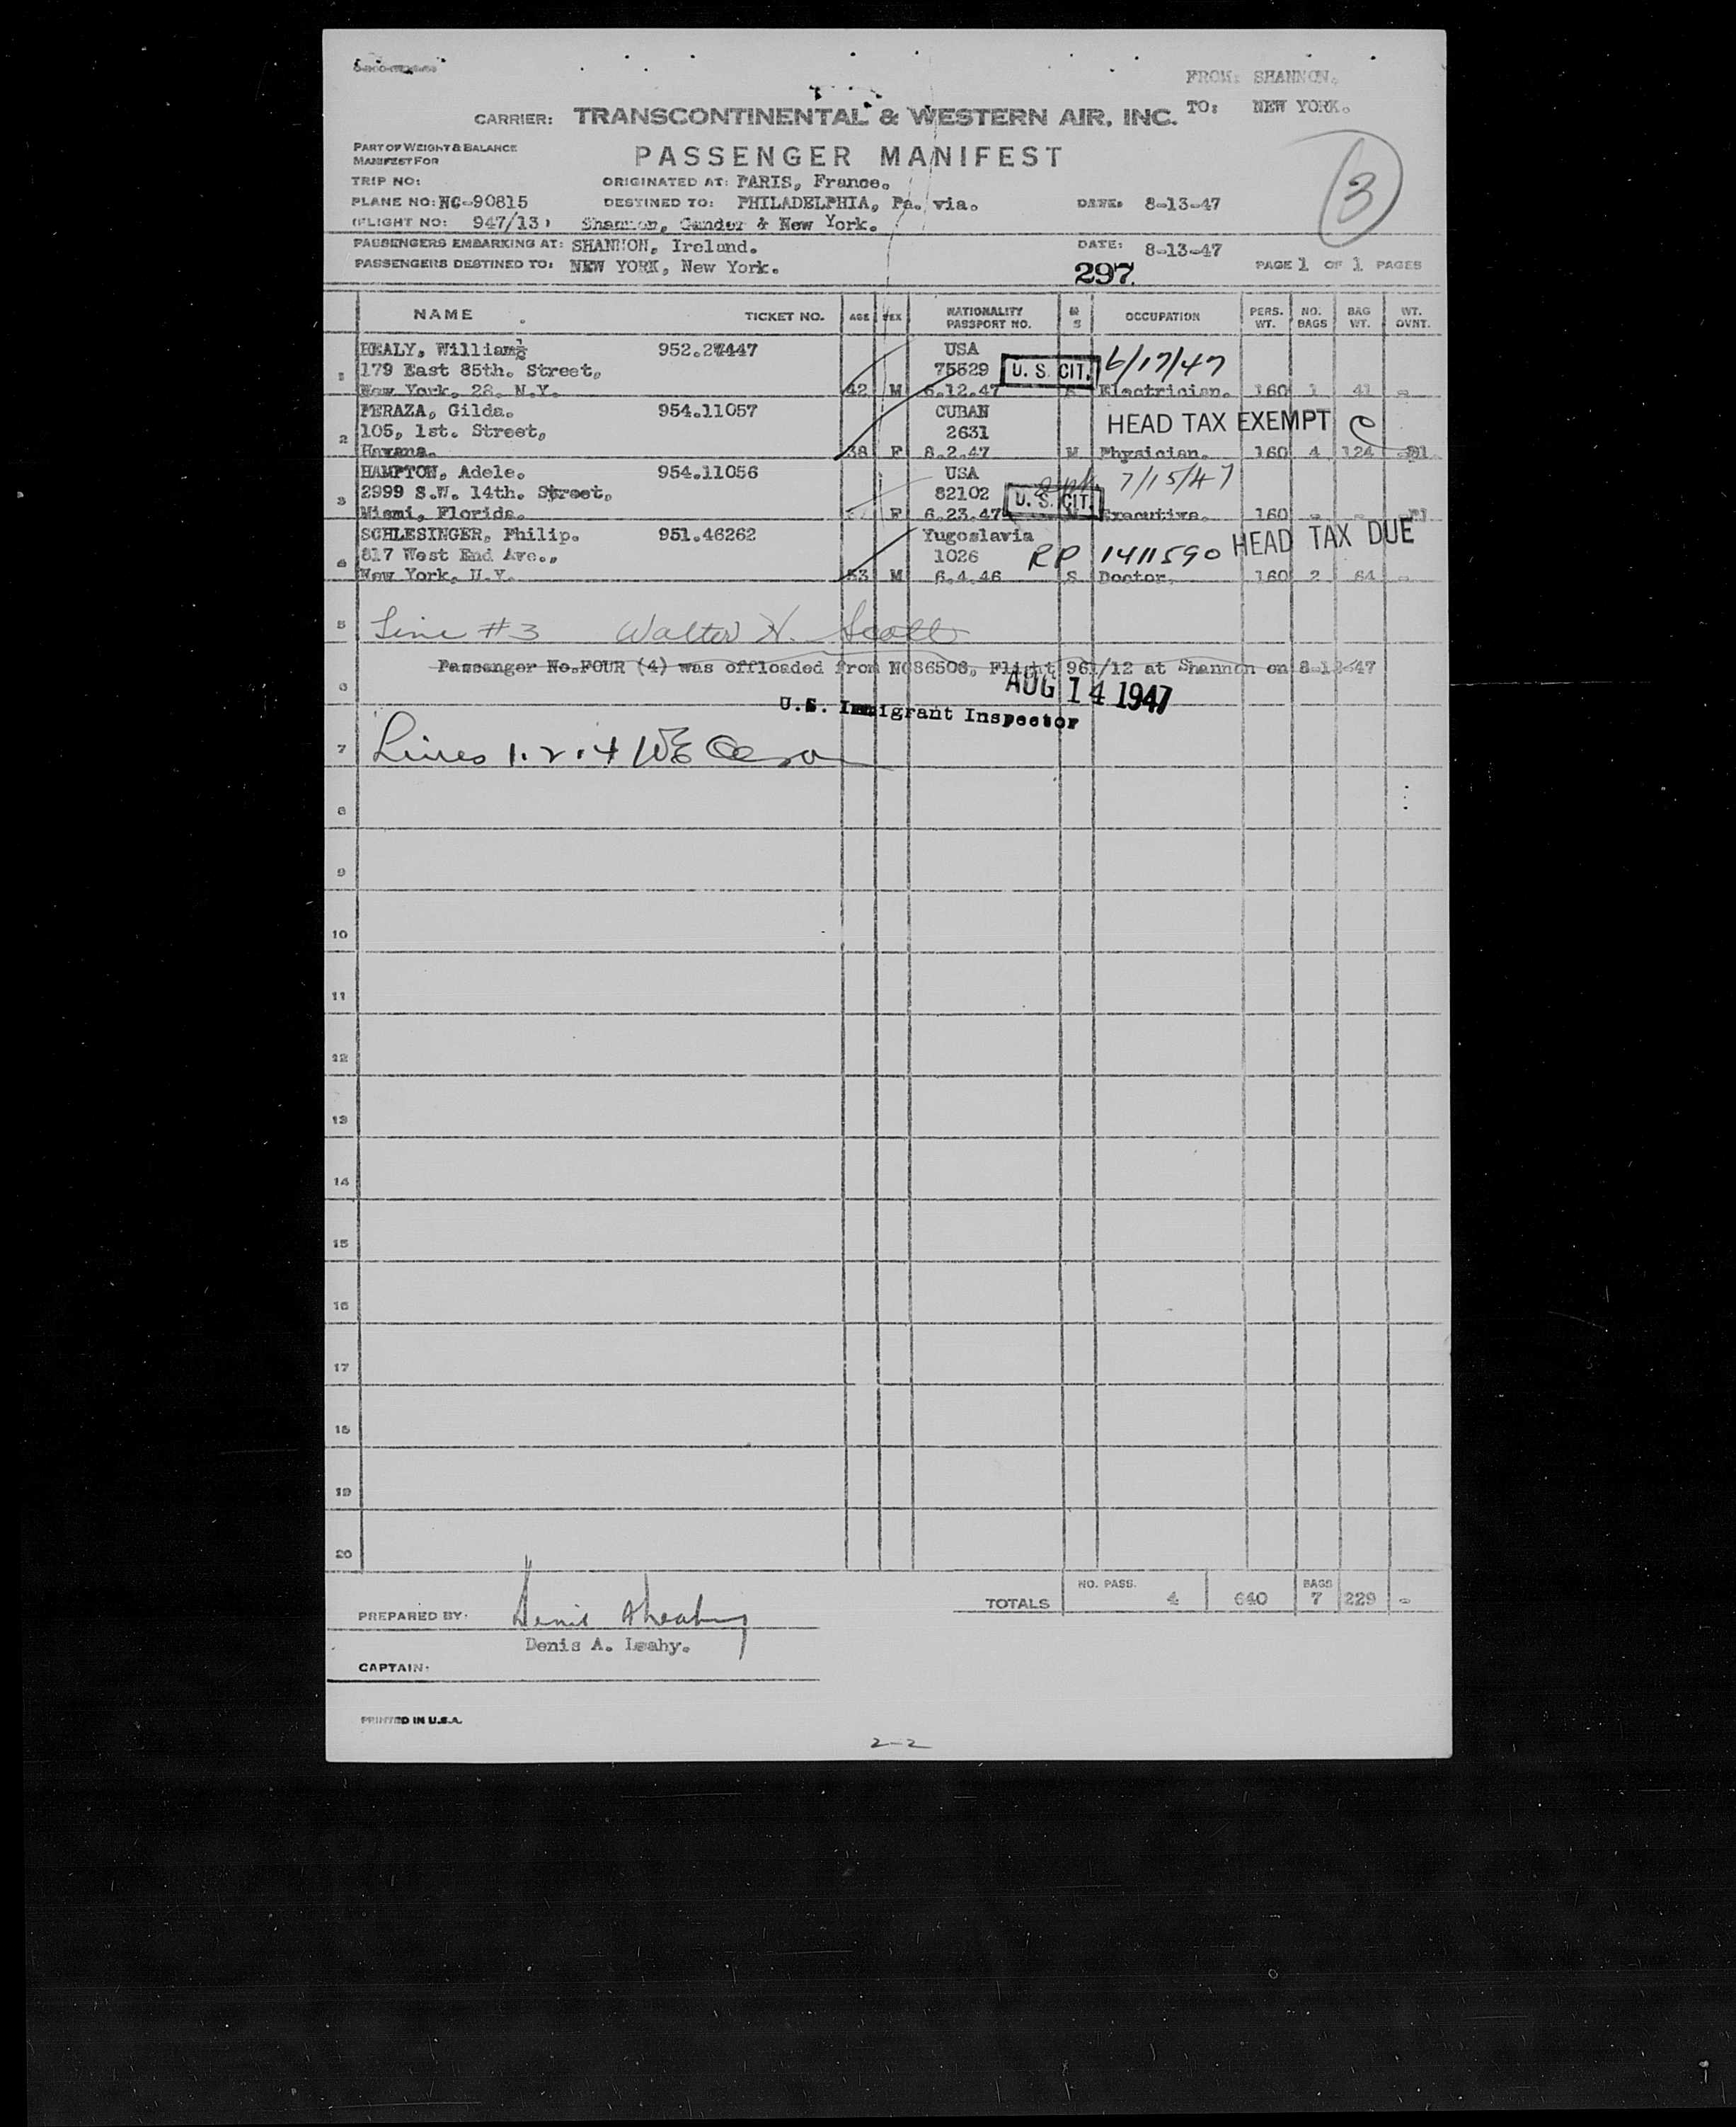 FROM: SHANNON.
CARRIER: TRANSCONTINENTAL & WESTERN AIR, INC. TO: NEW YORK.
PART OF WEIGHT & BALANCE
MANIFEST FOR
PASSENGER MANIFEST
3
TRIP NO: ORIGINATED AT: PARIS, France.
PLANE NO: NC-90815 DESTINED TO: PHILADELPHIA, Pa. via. DATE: 8-13-47
(FLIGHT NO: 947/13) Shannon, Gander & New York.
PASSENGERS EMBARKING AT: SHANNON, Ireland. DATE: 8-13-47
PASSENGERS DESTINED TO: NEW YORK, New York. 297. PAGE 1 OF 1 PAGES
NAME TICKET NO. AGE SEX NATIONALITY PASSPORT NO. M S OCCUPATION PERS. WT. NO. BAGS BAG WT. WT. OVNT.
HEALY, William 952.27447 USA
179 East 85th. Street, 75529 U. S. CIT. 6/17/47
1 New York. 28. N.Y. 42 M 6.12.47 Electrician. 160 1 41 -
PERAZA, Gilda. 954.11057 CUBAN HEAD TAX EXEMPT C
2 105, 1st. Street, 2631
Havana. 38 F 8.2.47 M Physician. 160 4 124
HAMPTON, Adele. 954.11056 USA 7/15/47
3 2999 S.W. 14th. Street, 82102 U. S. CIT.
Miami, Florida. F 6.23.47 Executive. 160 - -
SCHLESINGER, Philip. 951.46262 Yugoslavia HEAD TAX DUE
4 817 West End Ave., 1026 RP 1411590
New York, N.Y. 53 M 6.4.46 S Doctor. 160 2 64 -
5 Line #3 Walter H. Scott
Passenger No.FOUR (4) was offloaded from NC86506, Flight 961/12 at Shannon on 8-12-47
6 AUG 14 1947
U.S. Immigrant Inspector
7 Lines 1. 2. 4
8
9
10
11
12
13
14
15
16
17
18
19
20
TOTALS NO. PASS. 4 640 BAGS 7 229 -
PREPARED BY: Denis A Leahy
Denis A. Leahy.
CAPTAIN:
PRINTED IN U.S.A.
2-2